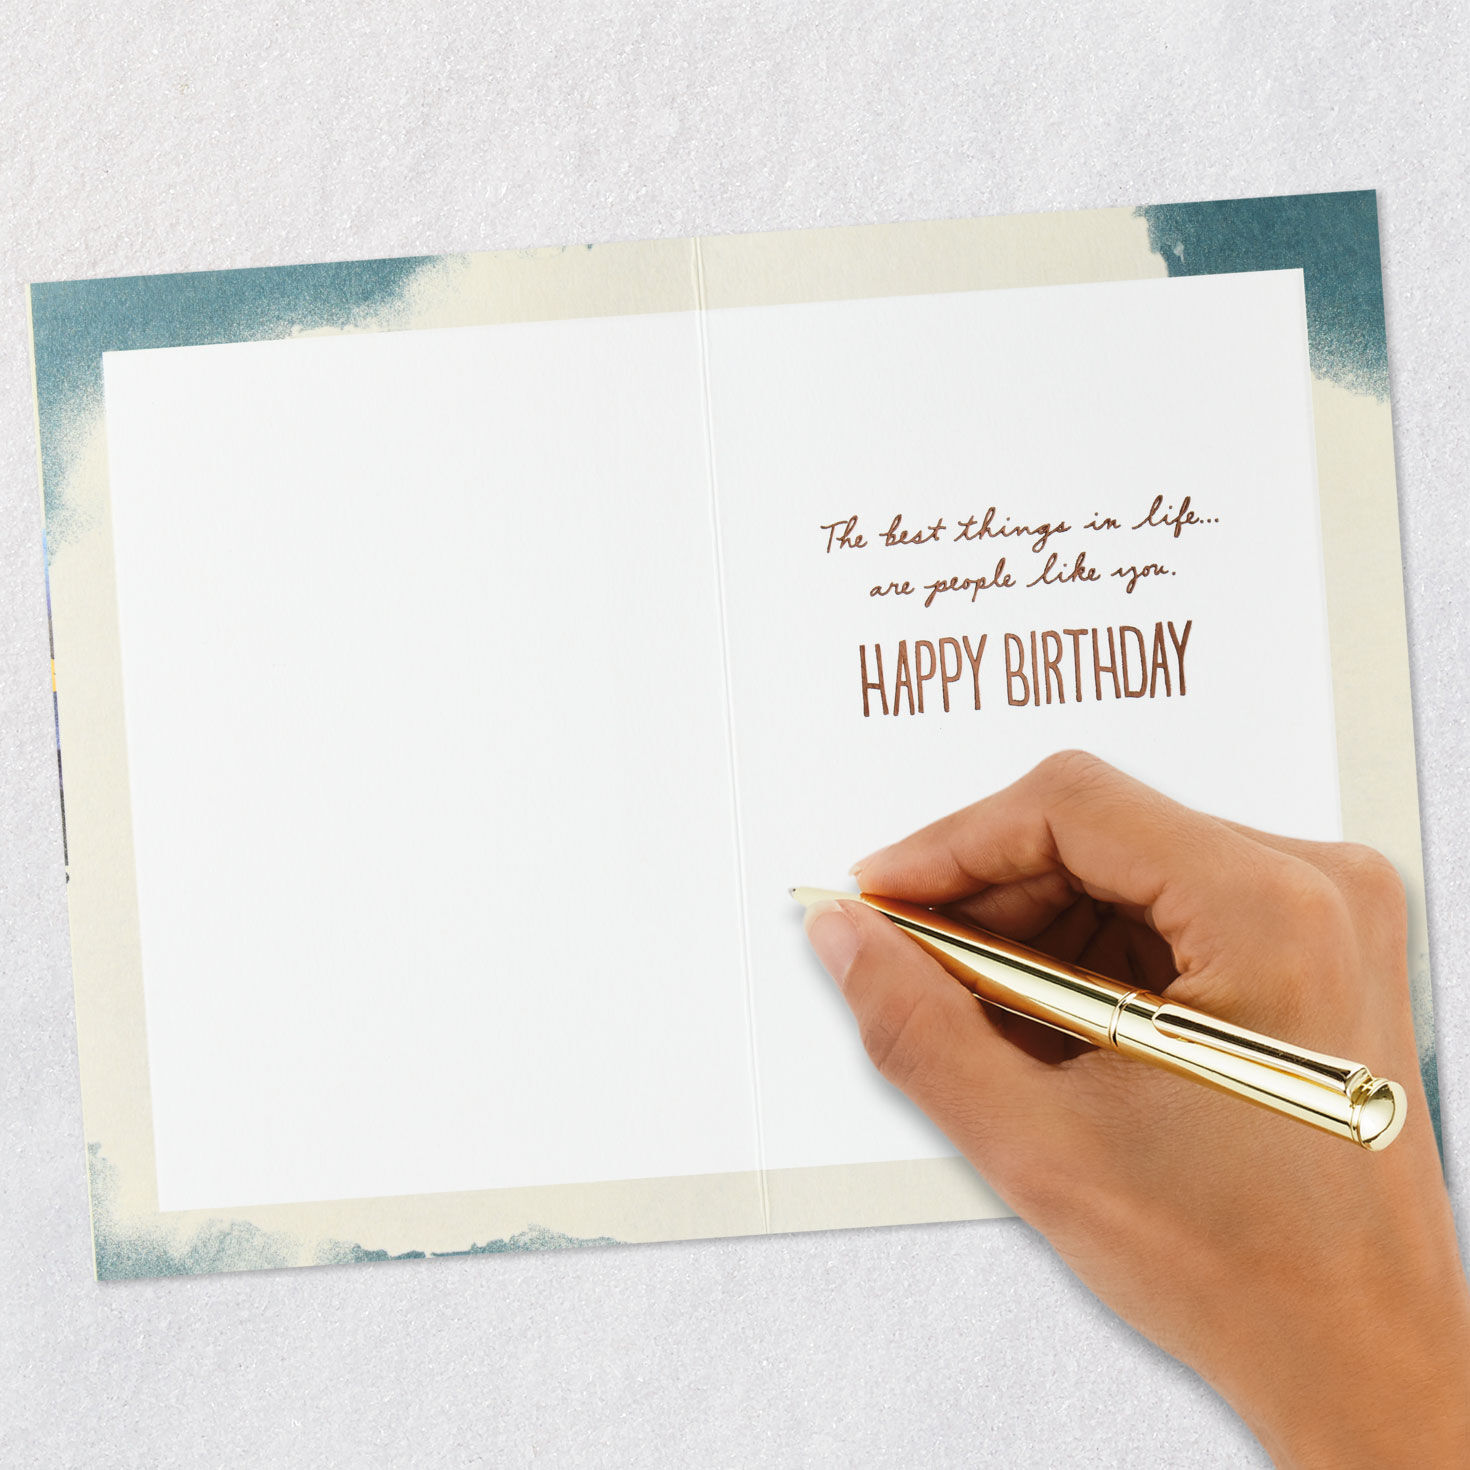 The best things in life...
are people like you.
HAPPY BIRTHDAY